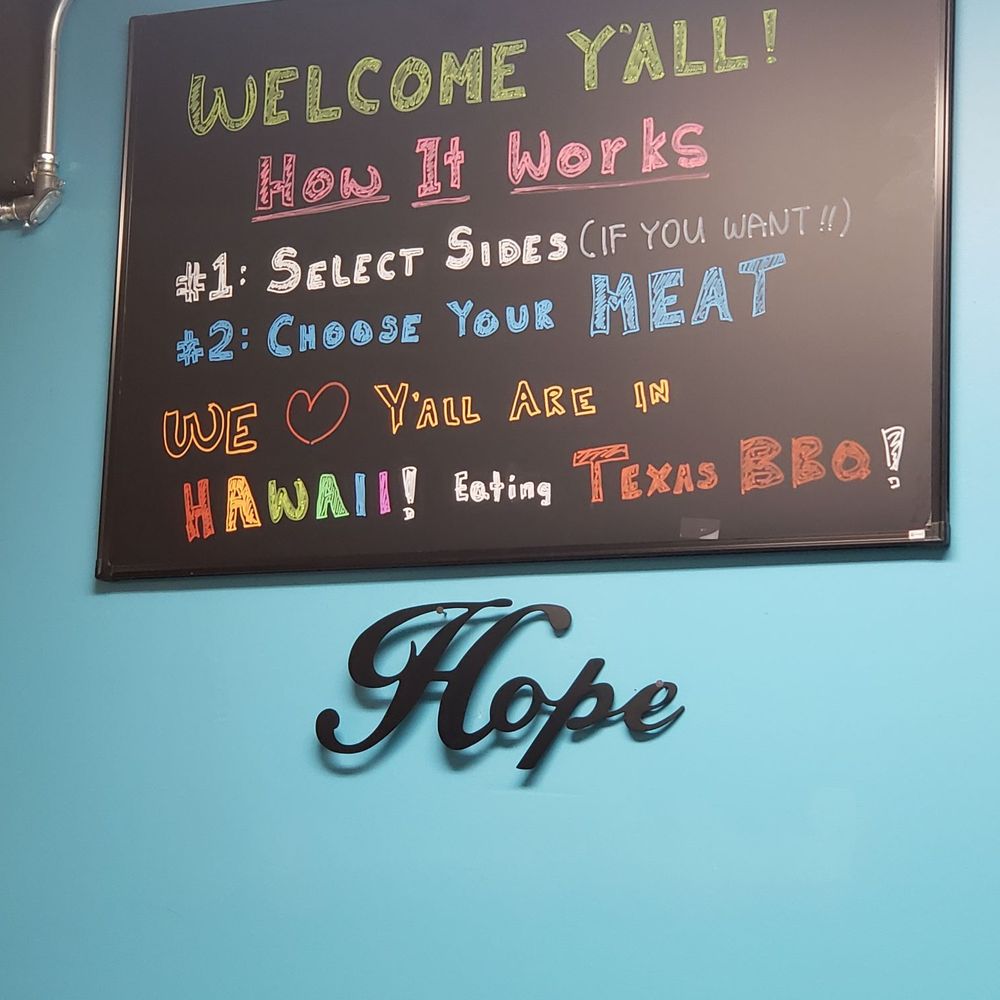 WELCOME Y'ALL!
How It Works
#1: SELECT SIDES (IF YOU WANT!!)
#2: CHOOSE YOUR MEAT
WE ♡ Y'ALL ARE IN
HAWAII! Eating TEXAS BBQ!
Hope